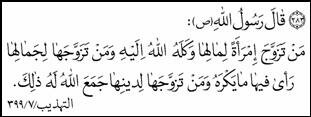 (٢٨٣) قٰالَ رَسُولُ اللهِ (ص):
مَنْ تَزَوَّجَ اِمْرَأَةً لِمالِهٰا وَكَلَهُ اللهُ اِلَيْهِ وَمَنْ تَزَوَّجَهٰا لِجَمالِهٰا
رَأىٰ فيهٰا مٰا يَكْرَهُ وَمَنْ تَزَوَّجَهٰا لِدينِهٰا جَمَعَ اللهُ لَهُ ذٰلِكَ.
التهذيب/٧/٣٩٩